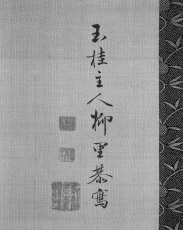 玉桂主人柳里恭寫